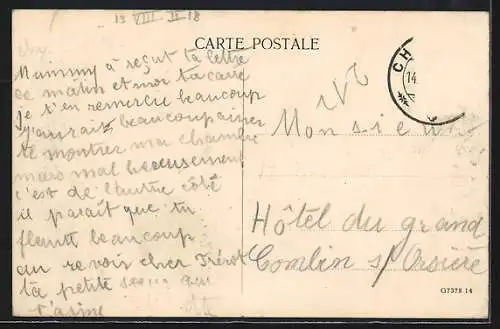 13 VIII 18
CARTE POSTALE
CH
14
Mummy à reçut ta lettre
ce matin et moi ta carte
je t'en remerciu beaucoup
J'aurait beaucoup aimer
te montrer ma chambre
mais mal heureusement
c'est de l'autre côté
il parait que tu
beaucoup
au revoir cher Frérot
ta petite
t'aime
Monsieur
Hôtel du grand
Combin s/ Orsière
G7378 14